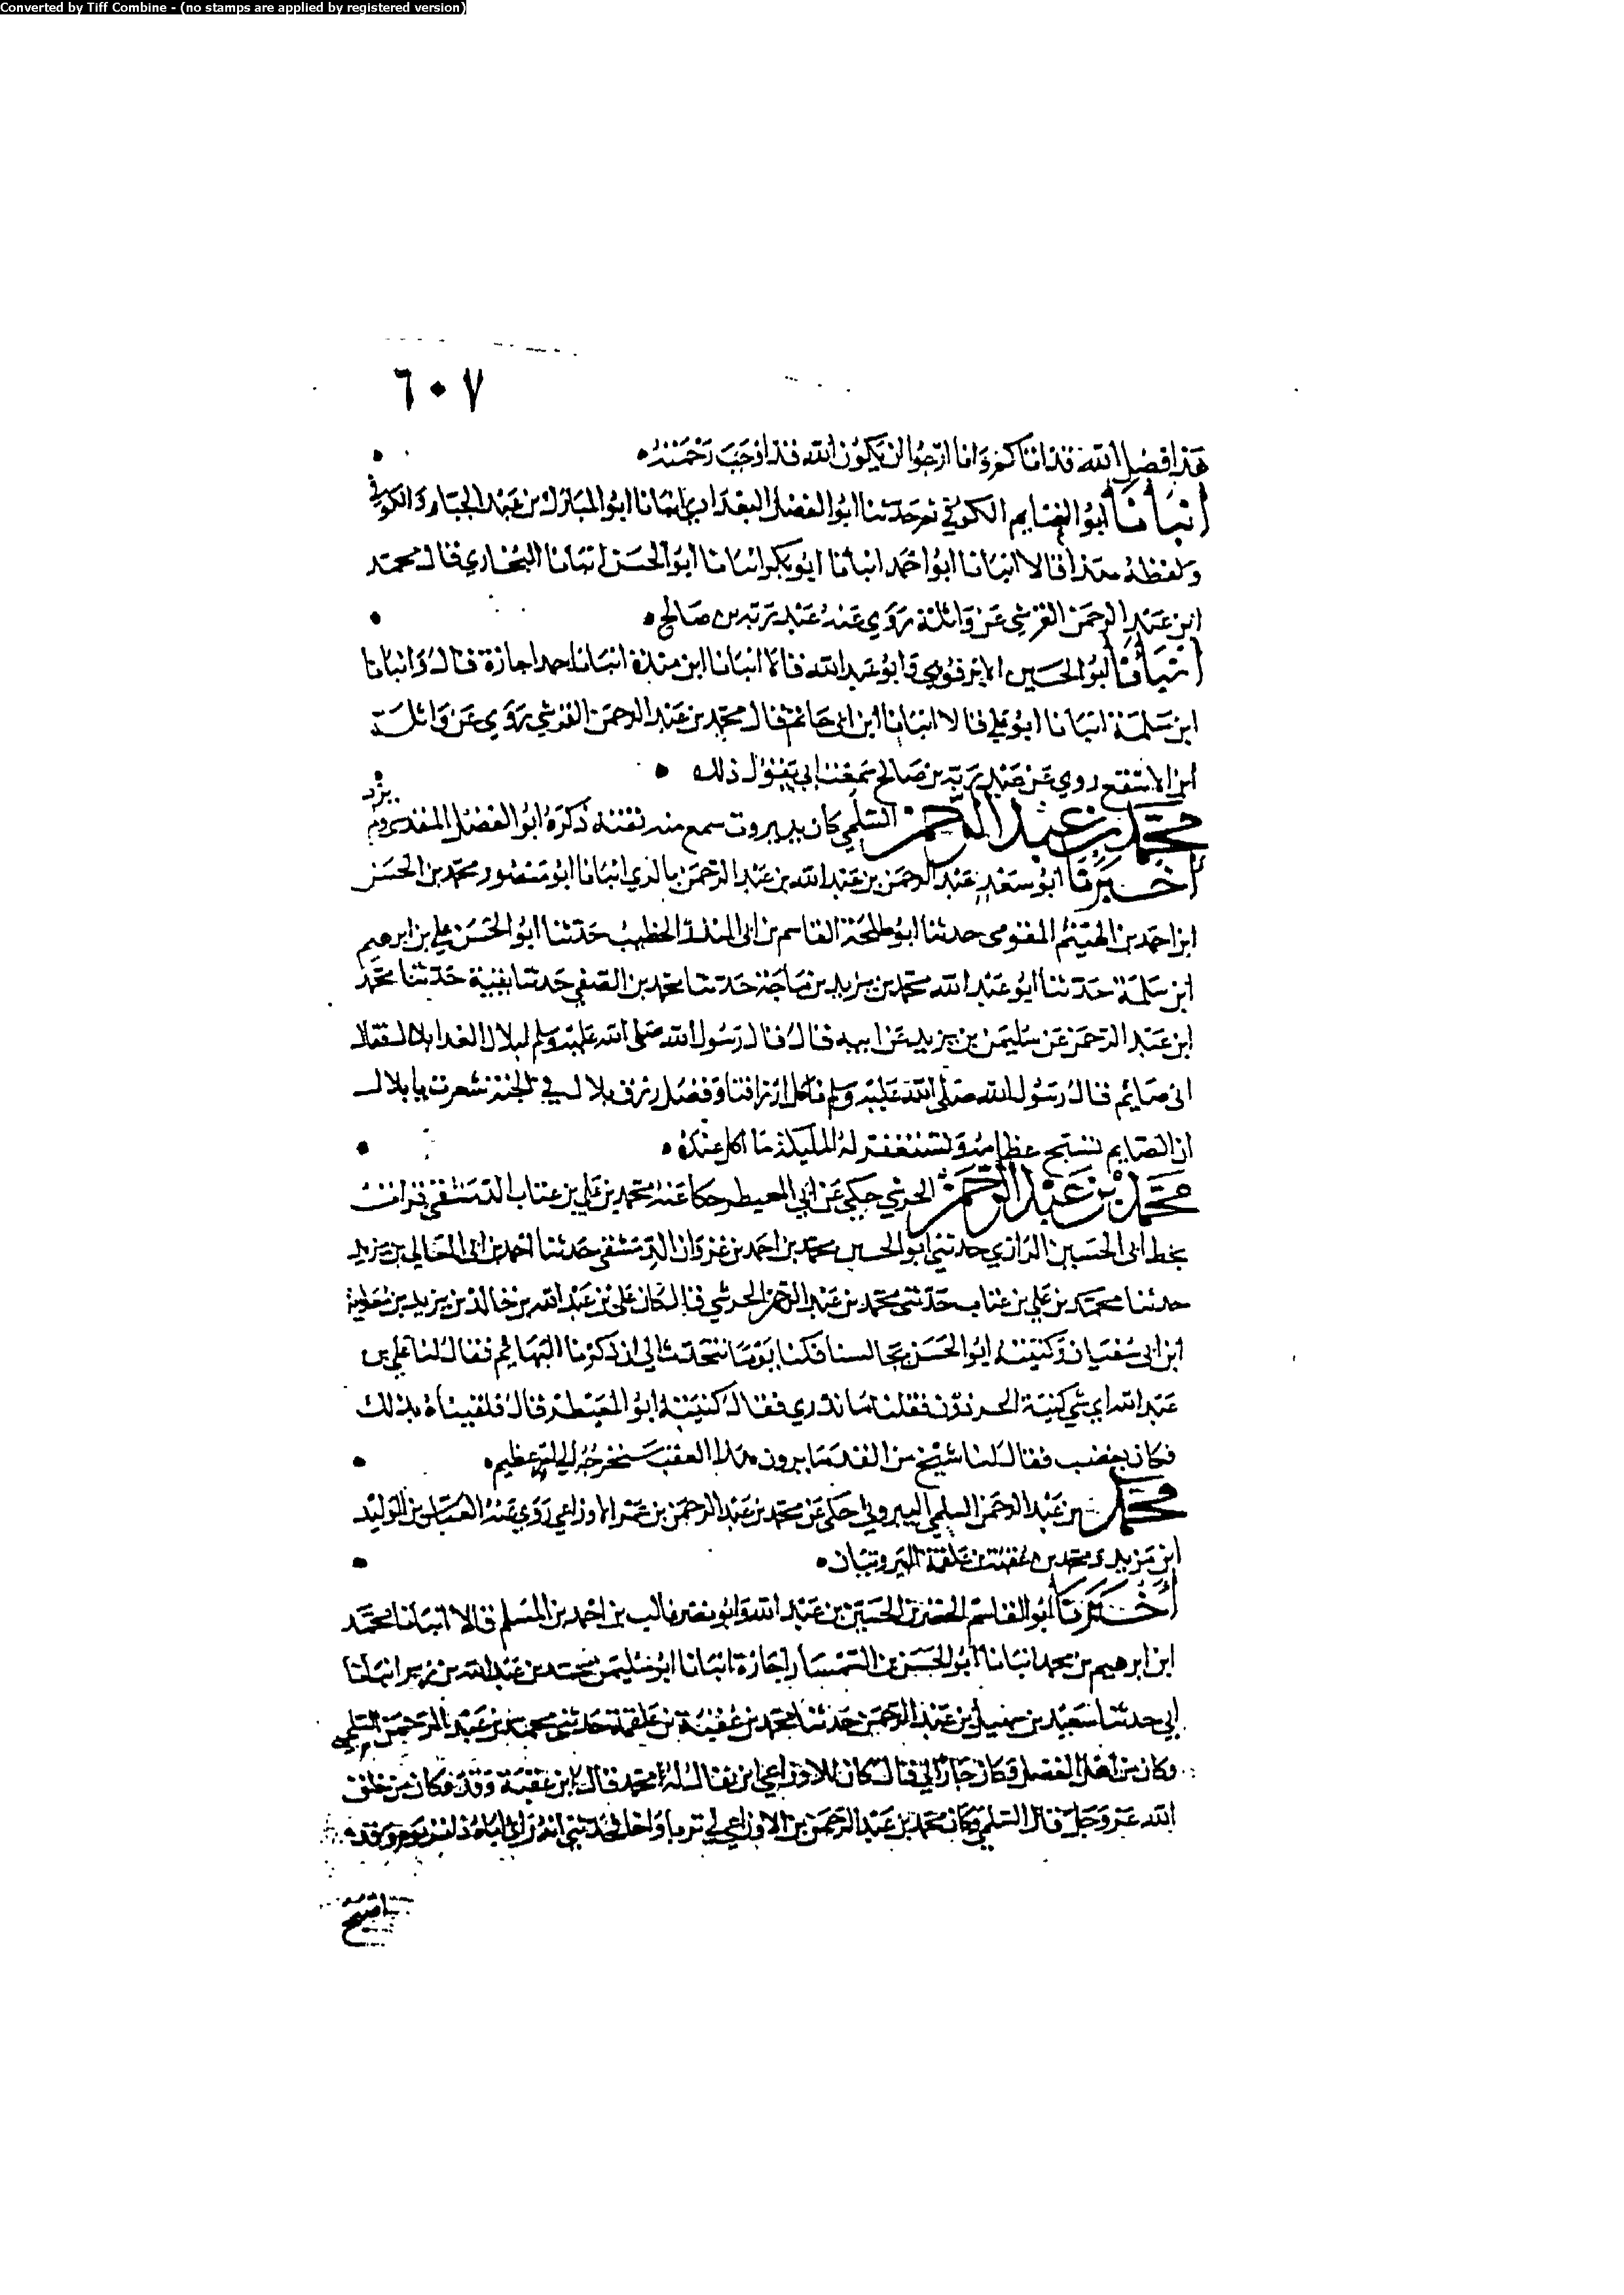 Converted by Tiff Combine - (no stamps are applied by registered version)
٦٠٧
هذا فضل الله قد اتاكموه وانا ارجوا ان يكون الله قد اوجب رحمته
أنبأنا ابو الغنايم الكوفي ثم حدثنا ابو الفضل البغدادي انبانا ابو المبارك بن عبد الجبار والكوفي
ولفظه هذا قالا انبانا ابو احمد انبانا ابو بكر انبانا ابو الحسن انبانا البخاري قال محمد
ابن عبد الرحمن القرشي عن واثلة روي عنه عبد ربه بن صالح
أنبأنا ابو الحسين الابرقوهي وابو عبد الله قالا انبانا ابن مندة انبانا احمد اجازة قال وانبانا
ابن سلمة انبانا ابو علي قالا انبانا ابن ابي حاتم قال محمد بن عبد الرحمن القرشي روي عن واثلة
ابن الاسقع روي عن عبد ربه بن صالح سمعت ابي يقول ذلك
محمد بن عبد الرحمن السلمي كان ببيروت سمع منه بقية ذكره ابو الفضل المقدسي ولم يزد
أخبرنا ابو سعد عبد الرحمن بن عبد الله بن عبد الرحمن بالري انبانا ابو منصور محمد بن الحسن
ابن احمد بن الهيثم المقومي حدثنا ابو طلحة القاسم بن ابي المنذر الخطيب حدثنا ابو الحسن علي بن ابرهيم
ابن سلمة حدثنا ابو عبد الله محمد بن يزيد بن ماجة حدثنا محمد بن المصفي حدثنا بقية حدثنا محمد
ابن عبد الرحمن عن سليمن بن بريد عن ابيه قال قال رسول الله صلى الله عليه وسلم لبلال الغدا يا بلال فقال
اني صايم قال رسول الله صلى الله عليه وسلم ناكل ارزاقنا وفضل رزق بلال في الجنة شعرت يا بلال
ان الصايم تسبح عظامه وتستغفر له المليكة ما اكل عنده
محمد بن عبد الرحمن الحرشي حكي عن ابي العميطر حكا عنه محمد بن علي بن عتاب الدمشقي قرات
بخط ابي الحسين الرازي حدثني ابو الحسين محمد بن احمد بن غزوان الدمشقي حدثنا احمد بن المعالي بن يزيد
حدثنا محمد بن علي بن عتاب حدثني محمد بن عبد الرحمن الحرشي قال كان علي بن عبد الله بن خالد بن يزيد بن معوية
ابن ابي سفيان وكنيته ابو الحسن يجالسنا فكنا يوما نتحدث الي ان ذكرنا البهايم فقال لنا علي بن
عبد الله اي شي كنية الحرذون فقلنا ما ندري فقال كنيته ابو العميطر قال فلقبناه بذلك
فكان يغضب فقال لنا شيخ من القدما يرون هذا العقب سنخرجه الي امر عظيم
محمد بن عبد الرحمن السلمي البيروتي حكي عن محمد بن عبد الرحمن بن عمر الاوزاعي روي عنه العباس بن الوليد
ابن مزيد ومحمد بن عقبة بن علقمة البيروتيان
أخبرنا ابو القاسم الخضر بن الحسين بن عبد الله وابو نصر غالب بن احمد بن المسلم قالا انبانا محمد
ابن ابرهيم بن محمد انبانا ابو الحسن بن السمسار اجازة انبانا ابو سليمن محمد بن عبد الله بن زبر انبانا
ابي حدثنا سعيد بن سهيل بن عبد الرحمن حدثنا محمد بن عقبة بن علقمة حدثني محمد بن عبد الرحمن السلمي
وكان من اهل الفضل وكان جارا لي قال كان للاوزاعي ابن يقال له محمد قال ابن عقبة وقد كان من خلق
الله عز وجل قال السلمي وكان محمد بن عبد الرحمن بن الاوزاعي لي تربا واخا فحدثني انه راي اباه ذات يوم وقد
اصبح